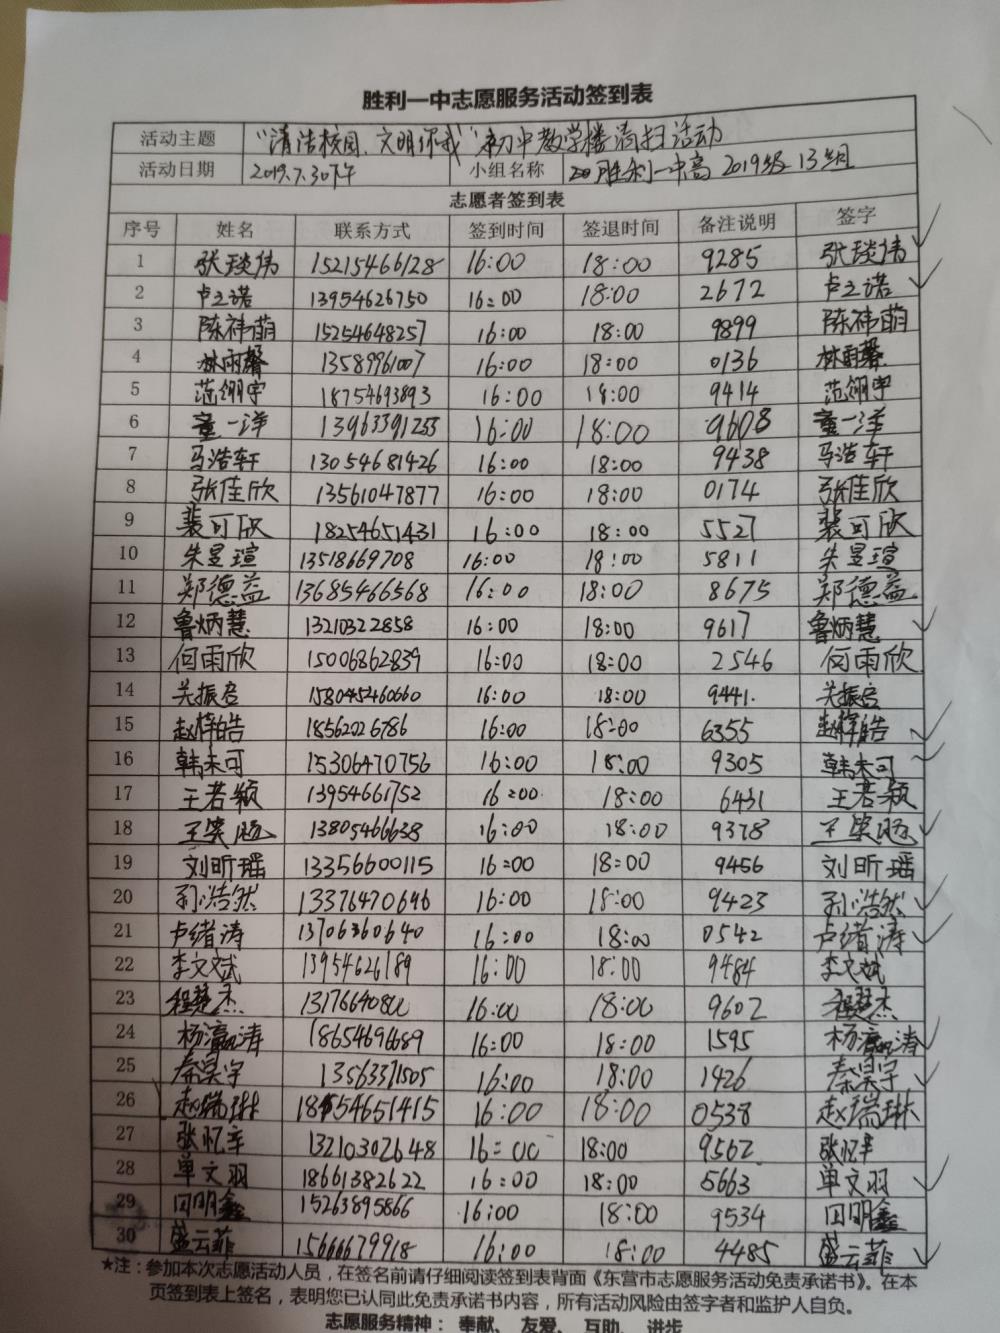 胜利一中志愿服务活动签到表
活动主题 “清洁校园、文明环我”初中教学楼清扫活动
活动日期 2019.7.30下午 小组名称 胜利一中高2019级13组
志愿者签到表
序号 姓名 联系方式 签到时间 签退时间 备注说明 签字
1 张琰伟 15215466128 16:00 18:00 9285 张琰伟
2 卢立诺 13954626750 16:00 18:00 2672 卢立诺
3 陈祎萌 15254648257 16:00 18:00 9899 陈祎萌
4 林雨馨 13589961007 16:00 18:00 0136 林雨馨
5 范翎宇 18754693893 16:00 18:00 9414 范翎宇
6 童一洋 13963391255 16:00 18:00 9608 童一洋
7 马浩轩 13054681426 16:00 18:00 9438 马浩轩
8 张佳欣 13561047877 16:00 18:00 0174 张佳欣
9 裴可欣 18254651431 16:00 18:00 5527 裴可欣
10 朱昱瑄 13518669708 16:00 18:00 5811 朱昱瑄
11 郑德益 13685466568 16:00 18:00 8675 郑德益
12 鲁炳慧 13210322858 16:00 18:00 9617 鲁炳慧
13 何雨欣 15006862839 16:00 18:00 2546 何雨欣
14 关振启 158045460660 16:00 18:00 9441. 关振启
15 赵梓皓 18562026786 16:00 18:00 6355 赵梓皓
16 韩未可 15306470756 16:00 18:00 9305 韩未可
17 王若颖 13954661752 16:00 18:00 6431 王若颖
18 王笑旸 13805466638 16:00 18:00 9378 王笑旸
19 刘昕瑶 13356600115 16:00 18:00 9456 刘昕瑶
20 孙浩然 13376470646 16:00 18:00 9423 孙浩然
21 卢绪涛 13706360640 16:00 18:00 0542 卢绪涛
22 李文斌 13954626189 16:00 18:00 9484 李文斌
23 程楚杰 13176640800 16:00 18:00 9602 程楚杰
24 杨瀛涛 18654694689 16:00 18:00 1595 杨瀛涛
25 秦昊宇 13563371505 16:00 18:00 1426 秦昊宇
26 赵瑞琳 18654651415 16:00 18:00 0538 赵瑞琳
27 张忆辛 13210302648 16:00 18:00 9562 张忆辛
28 单文羽 18661382622 16:00 18:00 5663 单文羽
29 田明鑫 15263895866 16:00 18:00 9534 田明鑫
30 盛云菲 15666679918 16:00 18:00 4485 盛云菲
★注：参加本次志愿活动人员，在签名前请仔细阅读签到表背面《东营市志愿服务活动免责承诺书》。在本
页签到表上签名，表明您已认同此免责承诺书内容，所有活动风险由签字者和监护人自负。
志愿服务精神：奉献、友爱、互助、进步